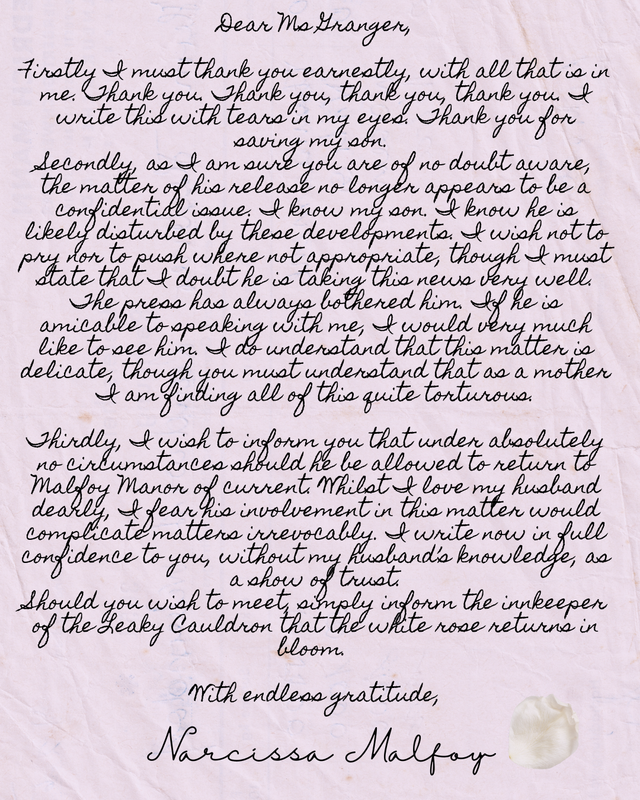 Dear Ms Granger,
Firstly I must thank you earnestly, with all that is in
me. Thank you. Thank you, thank you, thank you. I
write this with tears in my eyes. Thank you for
saving my son.
Secondly, as I am sure you are of no doubt aware,
the matter of his release no longer appears to be a
confidential issue. I know my son. I know he is
likely disturbed by these developments. I wish not to
pry nor to push where not appropriate, though I must
state that I doubt he is taking this news very well.
The press has always bothered him. If he is
amicable to speaking with me, I would very much
like to see him. I do understand that this matter is
delicate, though you must understand that as a mother
I am finding all of this quite torturous.
Thirdly, I wish to inform you that under absolutely
no circumstances should he be allowed to return to
Malfoy Manor of current. Whilst I love my husband
dearly, I fear his involvement in this matter would
complicate matters irrevocably. I write now in full
confidence to you, without my husband's knowledge, as
a show of trust.
Should you wish to meet, simply inform the innkeeper
of the Leaky Cauldron that the white rose returns in
bloom.
With endless gratitude,
Narcissa Malfoy